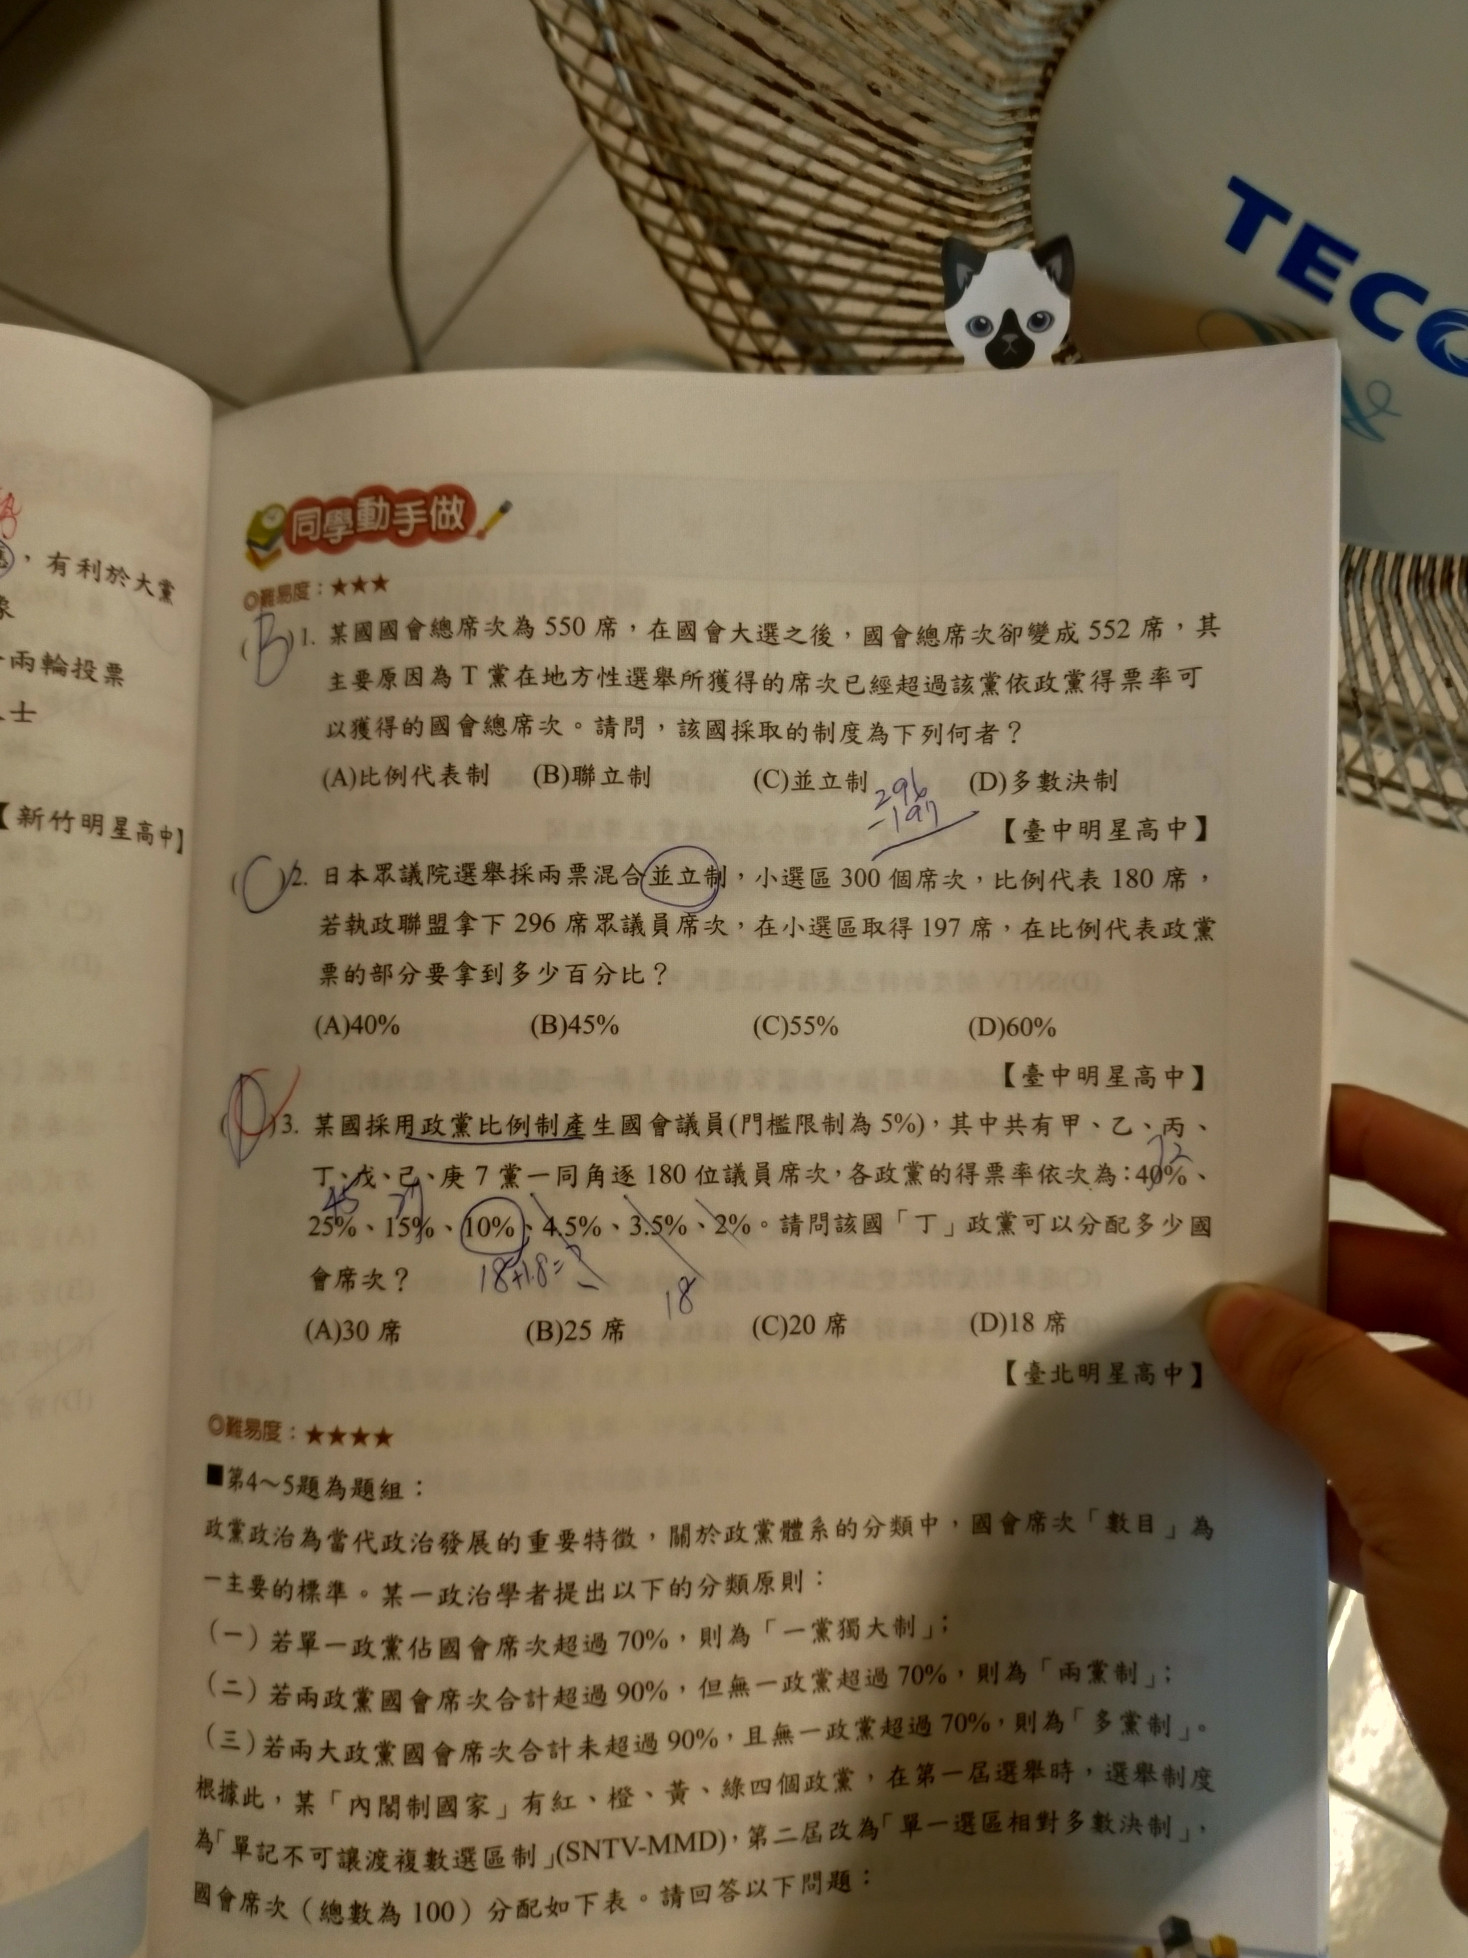 TECO
同學動手做
◎難易度：★★★
，有利於大黨
象
兩輪投票
人士
【新竹明星高中】
(B)1. 某國國會總席次為 550 席，在國會大選之後，國會總席次卻變成 552 席，其
主要原因為 T 黨在地方性選舉所獲得的席次已經超過該黨依政黨得票率可
以獲得的國會總席次。請問，該國採取的制度為下列何者？
(A)比例代表制 (B)聯立制 (C)並立制 (D)多數決制
296
-197
【臺中明星高中】
(C)2. 日本眾議院選舉採兩票混合並立制，小選區 300 個席次，比例代表 180 席，
若執政聯盟拿下 296 席眾議員席次，在小選區取得 197 席，在比例代表政黨
票的部分要拿到多少百分比？
(A)40% (B)45% (C)55% (D)60%
【臺中明星高中】
(D)3. 某國採用政黨比例制產生國會議員(門檻限制為 5%)，其中共有甲、乙、丙、
72
丁、戊、己、庚 7 黨一同角逐 180 位議員席次，各政黨的得票率依次為：40%、
45 27
25%、15%、10%、4.5%、3.5%、2%。請問該國「丁」政黨可以分配多少國
18+1.8=?
18
會席次？
(A)30 席 (B)25 席 (C)20 席 (D)18 席
【臺北明星高中】
◎難易度：★★★★
■第4～5題為題組：
政黨政治為當代政治發展的重要特徵，關於政黨體系的分類中，國會席次「數目」為
一主要的標準。某一政治學者提出以下的分類原則：
(一)若單一政黨佔國會席次超過 70%，則為「一黨獨大制」；
(二)若兩政黨國會席次合計超過 90%，但無一政黨超過 70%，則為「兩黨制」；
(三)若兩大政黨國會席次合計未超過 90%，且無一政黨超過 70%，則為「多黨制」。
根據此，某「內閣制國家」有紅、橙、黃、綠四個政黨，在第一屆選舉時，選舉制度
為「單記不可讓渡複數選區制」(SNTV-MMD)，第二屆改為「單一選區相對多數決制」，
國會席次（總數為 100）分配如下表。請回答以下問題：